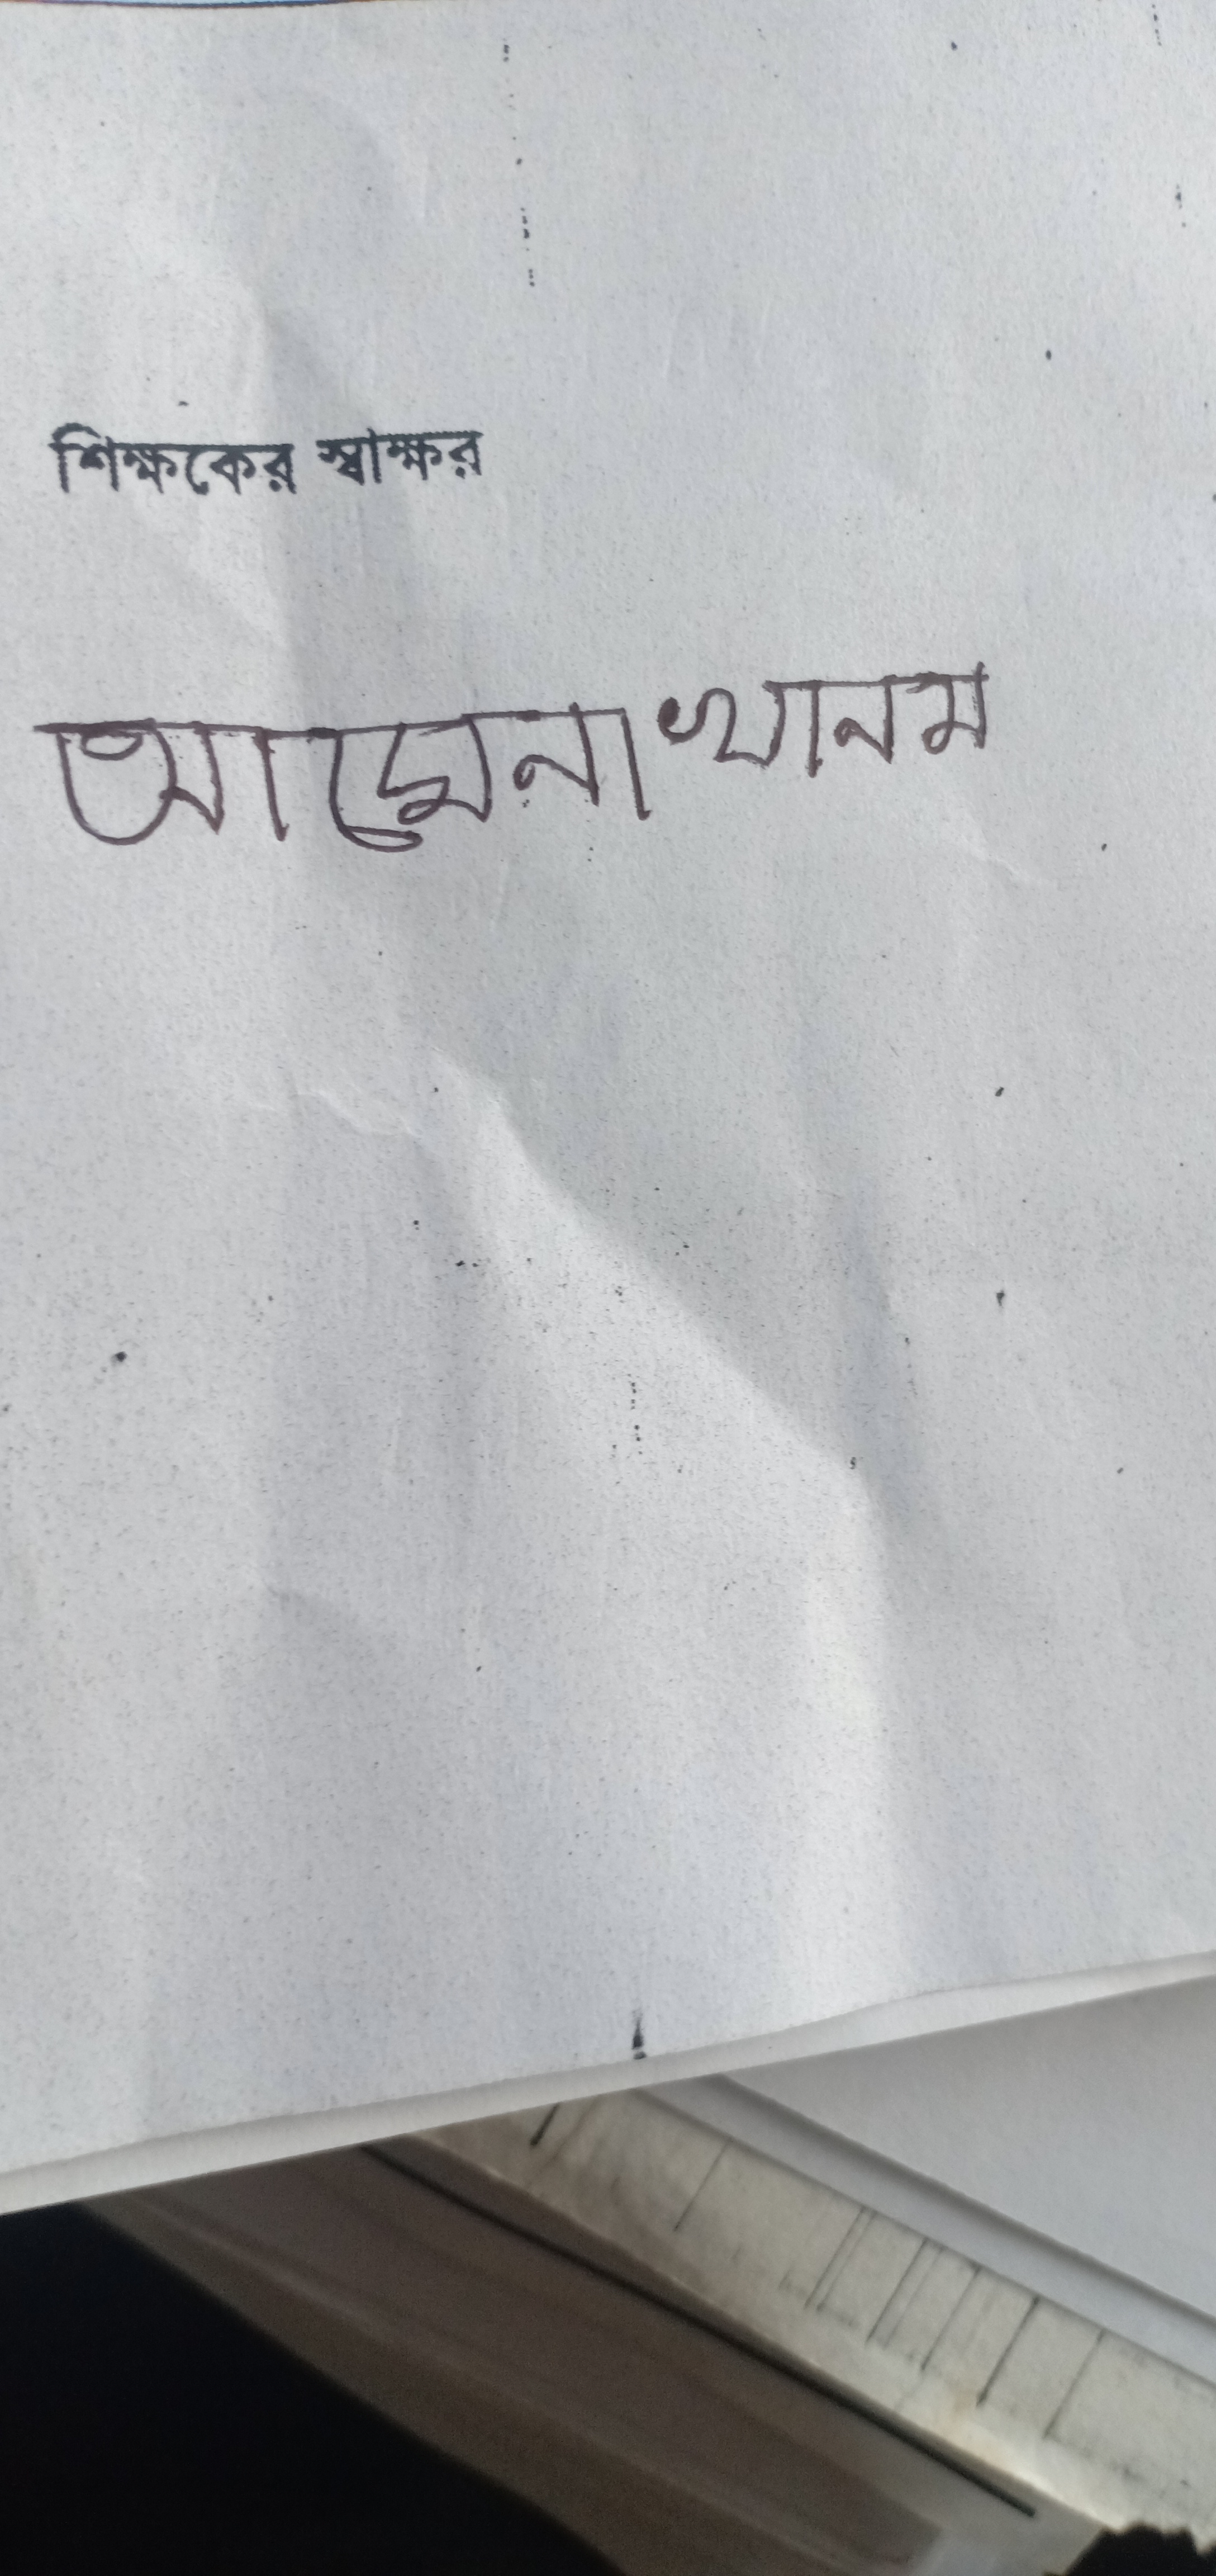 শিক্ষকের স্বাক্ষর
আমেনা খানম